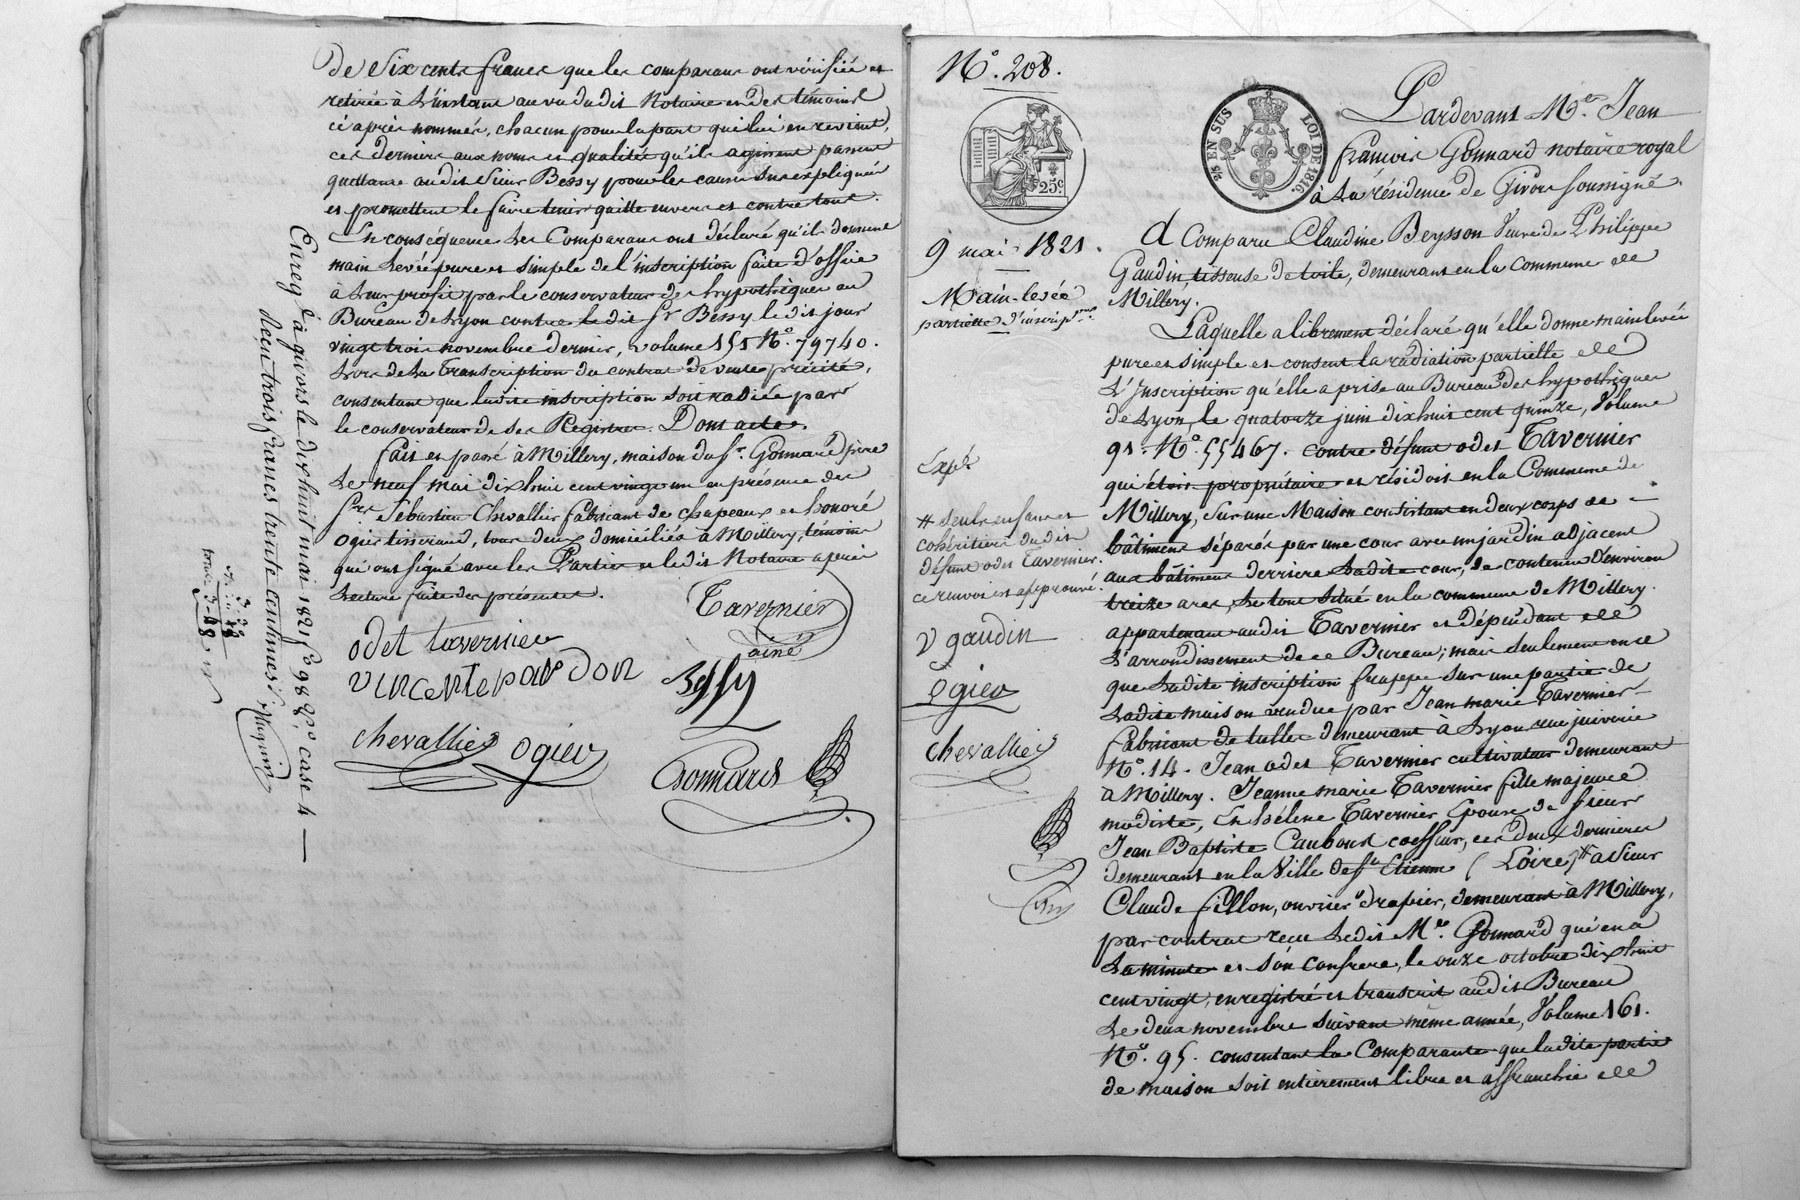 de Six cents francs que les comparans ont vérifiée et
retirée à L'instant au vu dudit Notaire et des témoins
ci après nommés, chacun pour la part qui lui en revient,
ces derniers aux noms et qualités qu'ils agissent passent
quittance audit Sieur Bessy pour les causes sus expliquées
et promettent le faire tenir quitte envers et contre tout.
En conséquence Les Comparans ont déclaré qu'ils donnent
main Levée pure et simple de l'inscription faite d'office
à Leur profit par le conservateur des hypothèques au
Bureau de Lyon contre le dit Sr Bessy le dit jour
vingt trois novembre dernier, volume 151 No. 79740.
Lors de La transcription du contrat de vente précité,
consentant que ladite inscription soit radiée par
le conservateur de ses Registres. Dont acte.
fait et passé à Millery, maison du Sr. Gonnard frère
Le neuf mai dix huit cent vingt un en présence des
Srs. Sébastien Chevallier fabricant de chapeaux et honoré
Ogier tisserand, tous deux domiciliés à Millery, témoins
qui ont signé avec les Parties et le dit Notaire après
Lecture faite des présentes.
Tavernier
ainé
odet tavernier
vincente pardon
Bessy
chevallier ogier
Gonnard
Enregé à givors le dix huit mai 1821 fo 98 Ro. case 4
Reçu trois francs trente centimes.
No. 208.
25c
25 EN SUS
LOI DE 1816
9 mai 1821.
Main-levée
partielle d'inscripon
Pardevant Me. Jean
françois Gonnard notaire royal
à La résidence de Givors soussigné.
A Comparu Claudine Beysson Veuve de Philippe
Gaudin, tisseuse de toile, demeurant en la commune de
Millery.
Laquelle a librement déclaré qu'elle donne mainlevée
pure et simple et consent la radiation partielle de
L'Inscription qu'elle a prise au Bureau des hypothèques
de Lyon, le quatorze juin dix huit cent quinze, Volume
91. No. 55467. contre défunt odet Tavernier
qui étoit propriétaire et résidoit en la Commune de
Millery, sur une Maison consistant en deux corps de
bâtimens séparés par une cour avec un jardin adjacent
aux bâtimens derrière Ladite cour, de contenue d'environ
treize ares, Le tout situé en la commune de Millery.
appartenant audit Tavernier et dépendant de
L'arrondissement de ce Bureau; mais seulement en ce
que Ladite inscription frappe sur une partie de
Ladite maison vendue par Jean marie Tavernier
fabricant de tulles demeurant à Lyon rue juiverie
No. 14. Jean odet Tavernier cultivateur demeurant
à Millery. Jeanne marie Tavernier fille majeure
modiste, Et hélène Tavernier Epouse de Sieur
Jean Baptiste Caubout coeffeur, ces deux dernières
demeurant en la Ville de St Etienne (Loire) # a Sieur
Claude fillon, ouvrier drapier, demeurant à Millery,
par contrat reçu Ledit Me. Gonnard qui en a
La minute et son confrere, le onze octobre dix huit
cent vingt, enregistré et transcrit audit Bureau
Le deux novembre suivant même année, Volume 161.
No. 95. consentant la Comparante que ladite partie
de maison soit entièrement libre et affranchie de
Expé
# seuls enfans et
cohéritiers dudit
défunt odet Tavernier.
ce renvoi est approuvé.
v gaudin
ogier
chevallier